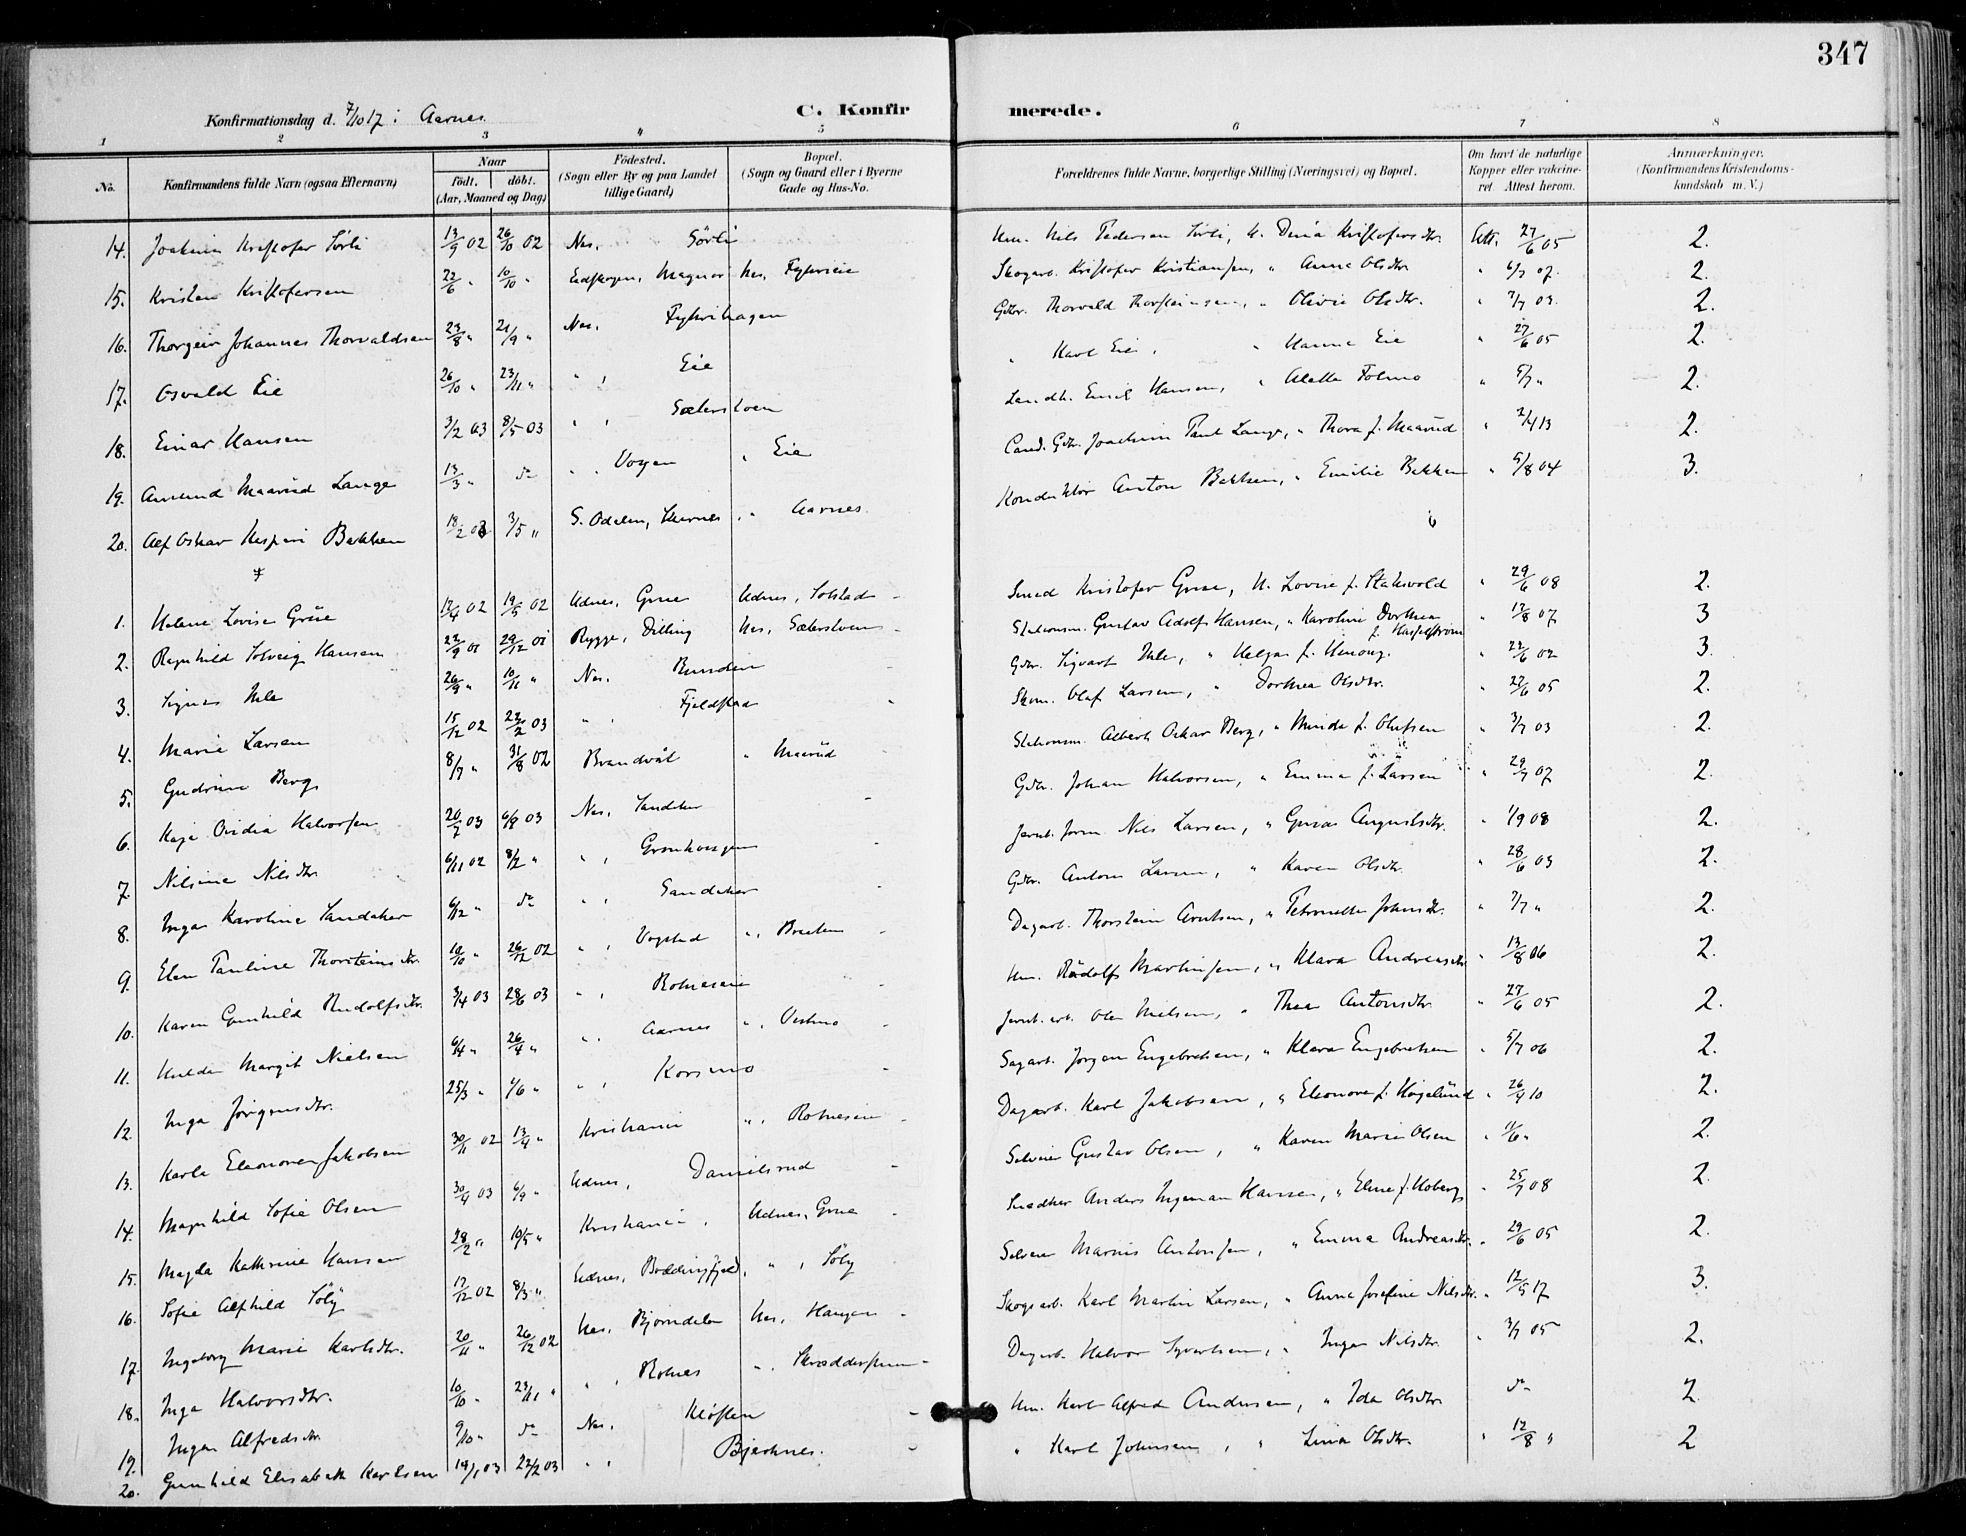 347
Konfirmationsdag d. 7/10 17 i Aarnes.
C. Konfirmerede.
1 2 3 4 5 6 7 8
No. Konfirmandens fulde Navn (ogsaa Efternavn) Naar födt. döbt. (Aar, Maaned og Dag) Födested. (Sogn eller By og paa Landet tillige Gaard) Bopæl. (Sogn og Gaard eller i Byerne Gade og Hus-No. Forældrenes fulde Navne, borgerlige Stilling (Næringsvei) og Bopæl. Om havt de naturlige Kopper eller vakcineret. Attest herom. Anmærkninger. (Konfirmandens Kristendomskundskab m. V.)
14. Joakim Kristofer Sörli 13/9 02 26/10 02 Nes. Sörli Nils Pedersen Sörli, Dina Kristofersdtr. Att. 27/6 05 2.
15. Kristen Kristofersen 22/6 " 10/10 " Eidskogen, Magnor Nes, Skogarb. Kristofer Kristiansen, " Anna Olsdtr. " 6/7 07. 2.
16. Thorgeir Johannes Thorvaldsen 23/8 " 21/9 " Nes. Gdbr. Thorvald Thorsteinsen, " Olivia Olsdtr. " 7/7 03. 2.
17. Osvald Eie 26/10 " 23/11 " " , Eie " Karl Eie, " Hanna Eie " 27/6 05 2.
18. Einar Hansen 3/2 03 8/5 03 " , Sæterstøen Landh. Emil Hansen, " Aletta Tolmo " 5/7 " 2.
19. Amund Maarud Lange 13/3 " do " , Vogen " Eie Cand. Gdbr. Joachim Paul Lange, " Thora f. Maarud " 2/4 13 2.
20. Alf Oskar Kasperi Bekken 18/2 03 3/5 " S. Odalen, Skarnes " Aarnes. Konduktör Anton Bekken, " Emilie Bekken " 5/8 04 3.
1. Helene Lovise Grue 12/4 02 19/5 02 Udnes, Grue Udnes, Solstad Smed Kristofer Grue, H. Lovise f. Staksvold " 29/6 08 2.
2. Ragnhild Solveig Hansen 22/9 01 29/12 01 Rygge, Dilling Nes, Sæterstøen Stationsm. Gustav Adolf Hansen, " Karoline Dorthea f. Haffelstrøm " 12/8 07 3
3. Signe Ihle 26/9 " 10/11 " Nes. Runden Gdbr. Sigvart Ihle, " Helga f. Henong. " 22/6 02 3.
4. Marie Larsen 15/12 02 22/2 03 " , Fjeldstad Skom. Olaf Larsen, " Dorthea Olsdtr. " 27/6 05 2.
5. Gudrun Berg 8/7 " 31/8 02 Brandvål " Maarud Stationsm. Albert Oskar Berg, " Minda f. Olufsen " 3/7 03 2.
6. Kaja Ovidia Halvorsen 20/7 03 6/9 03 Nes, Sandaker Gdbr. Johan Halvorsen, " Emma f. Larsen " 29/7 07 2.
7. Nilsine Nilsdtr. 6/11 02 8/2 " " , Jernb. form. Nils Larsen, " Gusta Augustsdtr. " 1/9 08 2.
8. Inga Karoline Sandaker 6/12 " do " , Sandaker Gdbr. Anton Larsen, " Karen Olsdtr. " 28/6 03 2.
9. Elen Pauline Thorsteinsdtr. 10/10 " 26/12 02 " , Vogstad " , Braaten Dagarb. Thorstein Arntsen, " Petronelle Johnsdtr. " 7/7 " 2.
10. Karen Gunhild Rudolfsdtr. 3/4 03 28/6 03 " , Rotnesene Hm. Rudolf Martinsen, " Klara Andreasdtr " 13/8 06 2.
11. Hulda Margit Nielsen 6/4 " 26/4 " " , Aarnes " , Vestmo Jernb. arb. Ole Nielsen, " Thea Antonsdtr. " 27/6 05 2.
12. Inga Jørgensdtr. 25/3 " 1/6 " " , Korsmo Sagarb. Jørgen Engebretsen, " Klara Engebretsen " 5/7 06 2.
13. Karla Eleonora Jakobsen 30/11 02 13/4 " Kristiania " , Rotnesene Dagarb. Karl Jakobsen, " Eleonora f. Høgelund " 26/4 10 2.
14. Magnhild Sofie Olsen 30/4 03 6/9 " Udnes, Danielsrud Selveier Gustav Olsen, " Karen Marie Olsen " 11/6 " 2.
15. Magda Kathrine Hansen 28/2 " 10/5 " Kristiania, Udnes, Grue Snedker Anders Ingeman Hansen, " Eline f. Hoberg " 25/7 08 2.
16. Sofie Alfhild Söly 17/12 02 8/3 " Udnes, Boddingfjeld, " , Söly Selveier Marius Antonsen, " Emma Andreasdtr. " 29/6 05 2.
17. Ingeborg Marie Karlsdtr. 20/11 " 26/12 02 Nes, Bjørndalen Nes, Haugen Skogsarb. Karl Martin Larsen, " Anna Josefine Nilsdtr. " 12/5 17 3.
18. Inga Halvorsdtr. 10/10 " 23/11 " " , Rotnes " , Skreddertun Dagarb. Halvor Syvertsen, " Inga Nilsdtr. " 3/7 05 2.
19. Inga Alfredsdtr. 9/10 " do Nes. Kløften Hm. Karl Alfred Andersen, " Ida Olsdtr. do 2
20. Gunhild Elisabeth Karlsen 14/1 03 22/2 03 " , Bjerknes. " Karl Johnsen, " Lina Olsdtr. " 12/8 " 2